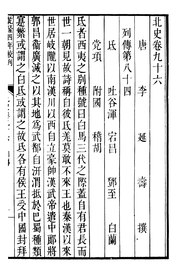 北史卷九十六
唐 李 延 壽 撰
列傳第八十四
氐 吐谷渾 宕昌 鄧至 白蘭
党項 附國 稽胡
氐者西夷之別種號曰白馬三代之際蓋自有君長而
世一朝見故詩稱自彼氐羌莫敢不來王也秦漢以來
世居岐隴以南漢川以西自立豪帥漢武帝遣中郎將
郭昌衛廣滅之以其地為武都郡自汧渭抵於巴蜀種類
寔繁或謂之白氐或謂之故氐各有侯王受中國封拜